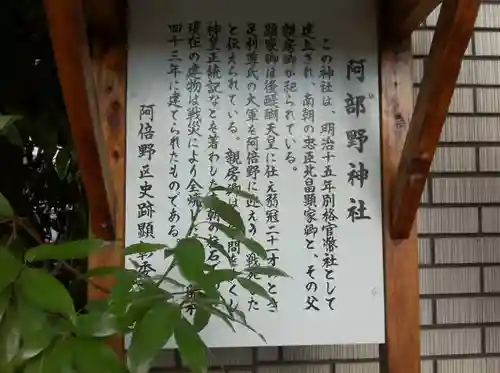 阿部野神社
この神社は、明治十五年別格官幣社として
建立され、南朝の忠臣北畠顕家卿と、その父
親房卿が祀られている。
顕家卿は後醍醐天皇に仕え弱冠二十一才のとき
足利尊氏の大軍を阿倍野に迎えう 戦死した
と伝えられている。親房卿は 間 つくし
神皇正統記などを著わした
現在の建物は戦災により全焼し
四十三年に建てられたものである
阿倍野区史跡顕